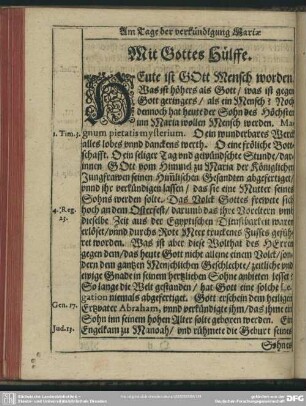 Am Tage der verkündigung Mariæ
Mit Gottes Hülffe.
HEute ist GOtt Mensch worden
Was ist höhers als Gott / was ist gegen
Gott geringers / als ein Mensch? Noch
dennoch hat heute der Sohn des Höchsten
inn Maria wollen Mensch werden. Ma-
1. Tim. 3.
gnum pietatis mysterium. O ein wunderbares Werck
alles lobes vnnd danckens werth. O eine frölche Bott-
schafft. O ein seliger Tag vnd gewündschte Stunde / dar-
innen GOtt vom Himmel zu Maria der Königlichen
Jungfrawen seinen Himlischen Gesandten abgefertiget /
vnnd ihr verkündigen lassen / das sie eine Mutter seines
Sohns werden solte. Das Volck Gottes frewete sich
4. Reg.
23.
hoch an dem Osterfest / darumb das ihre Voreltern vmb
dieselbe Zeit aus der Egyptischen Dienstbarkeit waren
erlöset / vnnd durchs Rote Meer truckenes Fusses gefüh-
ret worden. Was ist aber diese Wolthat des HErrn
gegen dem / das heute Gott nicht alleine einem Volck / son-
dern dem gantzen Menschlichen Geschlechte / zeitliche vnd
ewige Gnade in seinem hertzlieben Sohne anbieten lesset?
So lange die Welt gestanden / hat Gott eine solche Le-
gation niemals abgefertiget. Gott erschein dem heiligen
Gen. 17.
Ertzvater Abraham, vnnd verkündigte ihm / das ihme ein
Sohn inn seinem hohen Alter solte geboren werden. Ein
Jud. 13.
Engel kam zu Manoah / vnd rühmete die Geburt seines
Sohnes